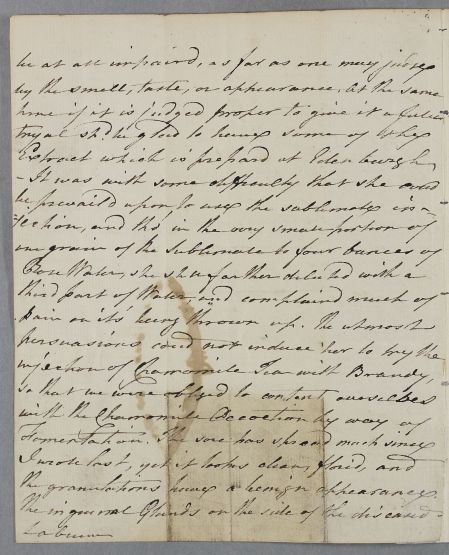 be at all impaird, as far as one may judge
by the smell, taste, or appearance. At the same
time if it is judged proper to give it a fuller
tryal shd. be glad to have some of the
Extract which is prepard at Edenburgh,
- It was with some difficulty that she could
be prevaild upon, to use the sublimate in=
=jection, and tho' in the very small portion of
one grain of the Sublimate to four ounces of
Rose Water, she still farther diluted with a
third part of Water, and complaind much of
pain on its' being thrown up. The utmost
persuasions could not induce her to try the
injection of Chamomile Tea with Brandy,
so that we were obliged to content ourselves
with the Chamomile Decoction by way of
Fomentation. The sore has spread much since
I wrote last, yet it looks clean, florid, and
the granulations have a benign appearance.
The inguinal Glands on the side of the diseased
Labium